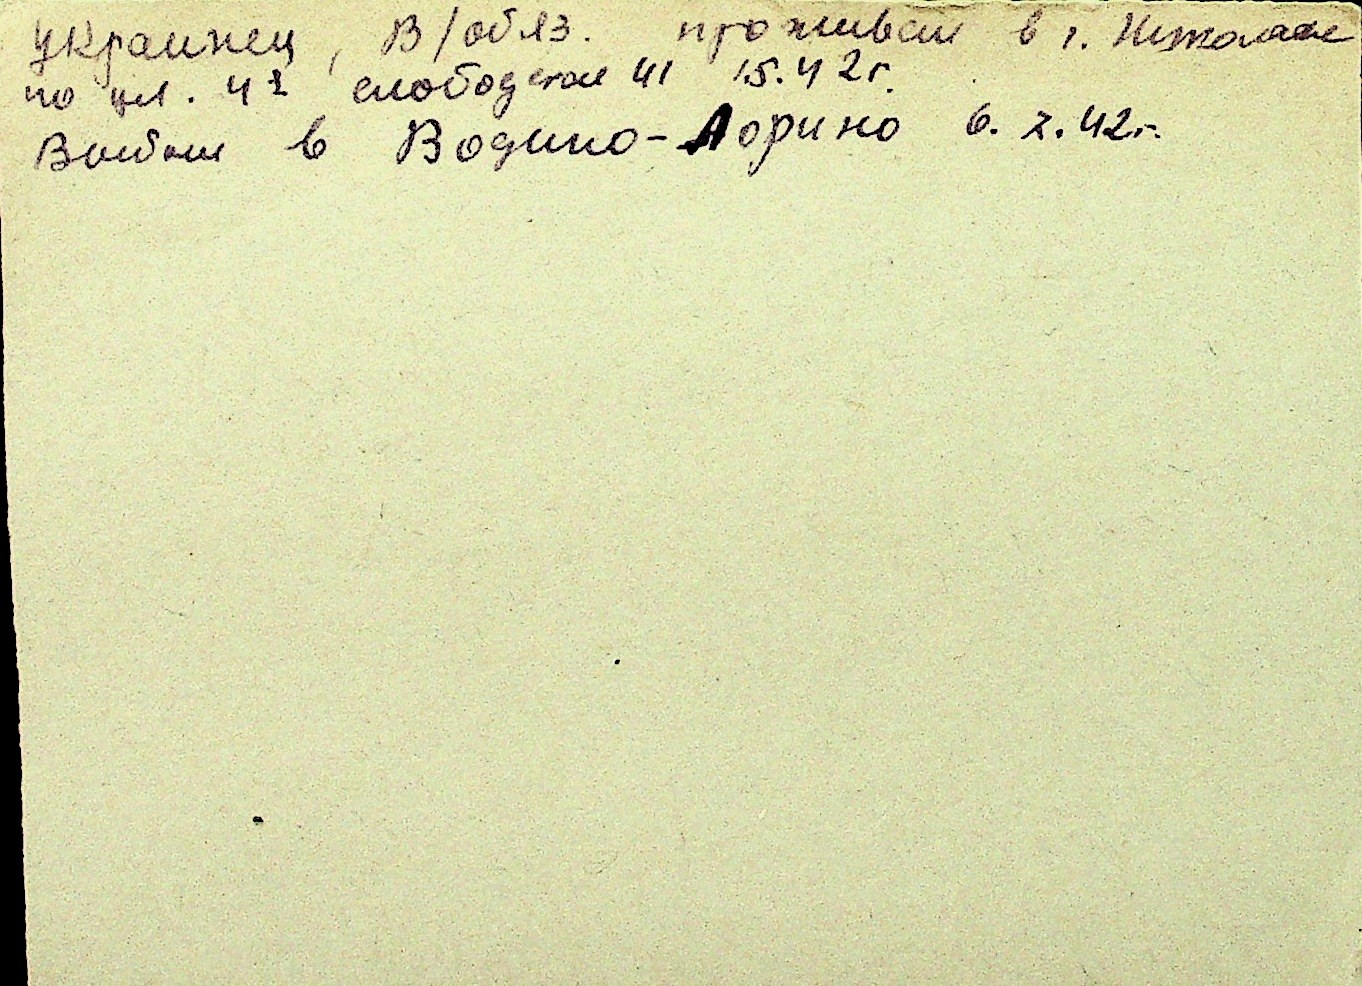 украинец, В/обяз. проживал в г. Николаеве
по ул. 4я слободская 41 15.42г.
Выбыл в Водино-Лорино 6. X. 42г.